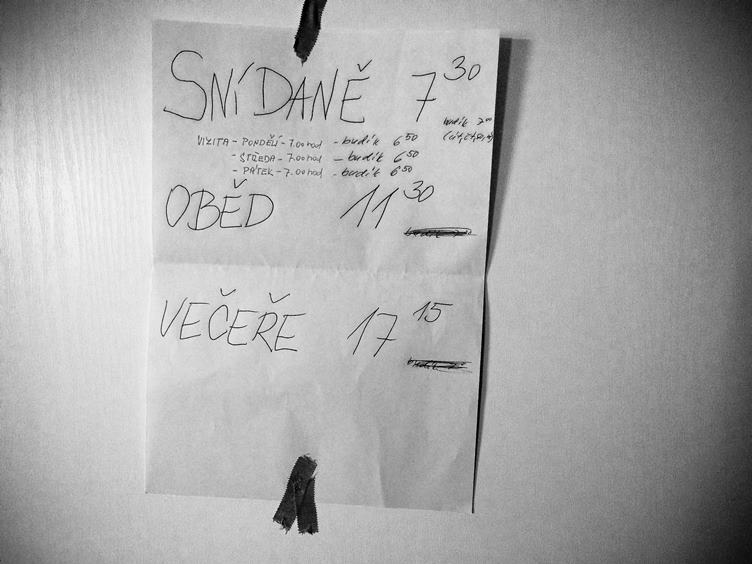 SNÍDANĚ 7 30
budík 7 00
VIZITA - PONDĚLÍ - 7.00 hod - budík 6 50
- STŘEDA - 7.00 hod - budík 6 50
- PÁTEK - 7.00 hod - budík 6 50
OBĚD 11 30
VEČEŘE 17 15